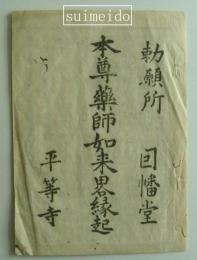 suimeido
勅願所 因幡堂
本尊薬師如来畧縁起
平等寺